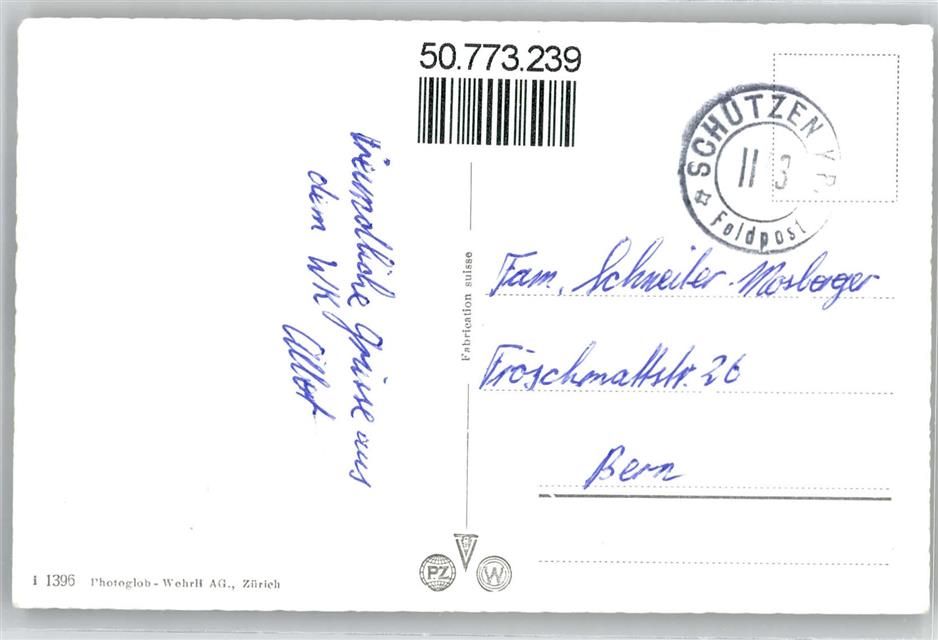 50.773.239
SCHÜTZEN
II 3
Feldpost
Freundliche Grüsse aus
dem WK
Albert
Fabrication suisse
Fam. Schneiter-Mosberger
Fröschmattstr. 26
Bern
PZ
W
i 1396 Photoglob-Wehrli AG., Zürich